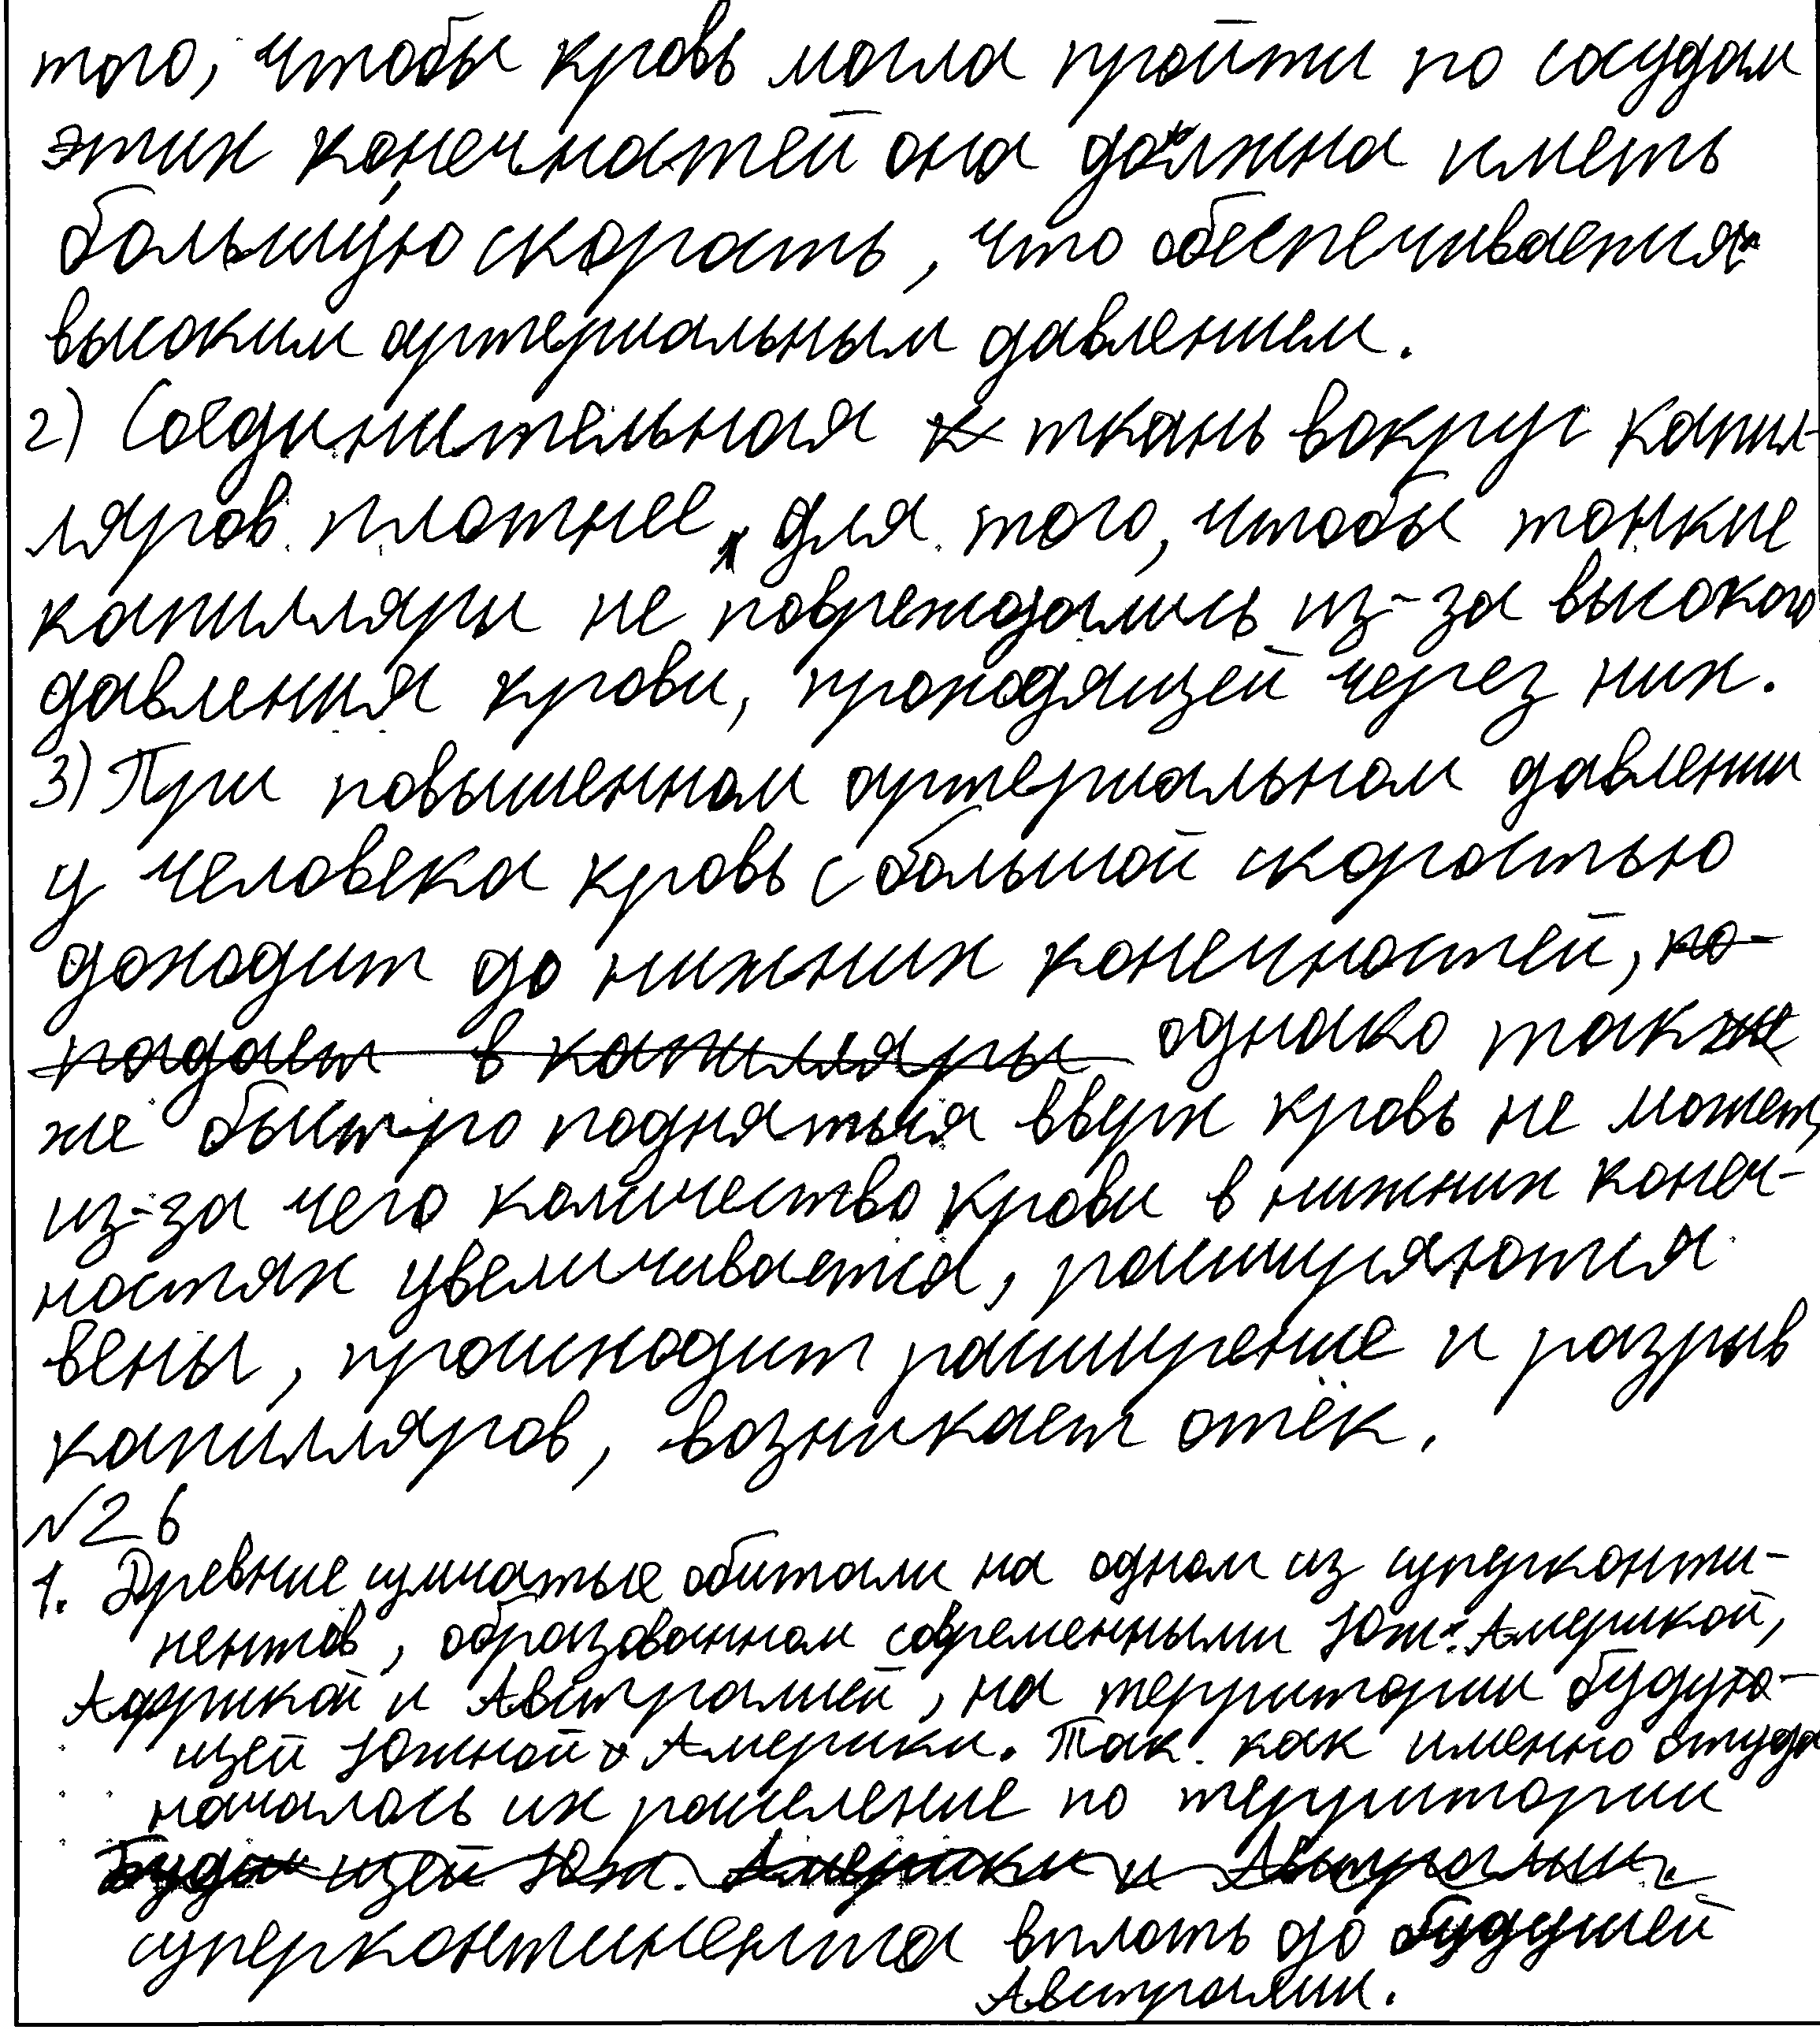 того, чтобы кровь могла пройти по сосудам
этих конечностей она должна иметь
большую скорость, что обеспечивается
высоким артериальным давлением.
2) Соединительная ткань вокруг капил-
ляров плотнее, для того, чтобы тонкие
капилляры не повреждались из-за высокого
давления крови, проходящей через них.
3) При повышенном артериальном давлении
у человека кровь с большой скоростью
доходит до нижних конечностей, по-
падает в капилляры однако так
же быстро подняться вверх кровь не может,
из-за чего количество крови в нижних конеч-
ностях увеличивается, расширяются
вены, происходит расширение и разрыв
капилляров, возникает отёк.
№26
1. Древние сумчатые обитали на одном из суперконти-
нентов, образованном современными Юж. Америкой,
Африкой и Австралией, на территории будую-
щей Южной Америки. Так как именно оттуда
началось их расселение по территории
будующей Юж. Америки и Австралии.
суперконтинента вплоть до будущей
Австралии.